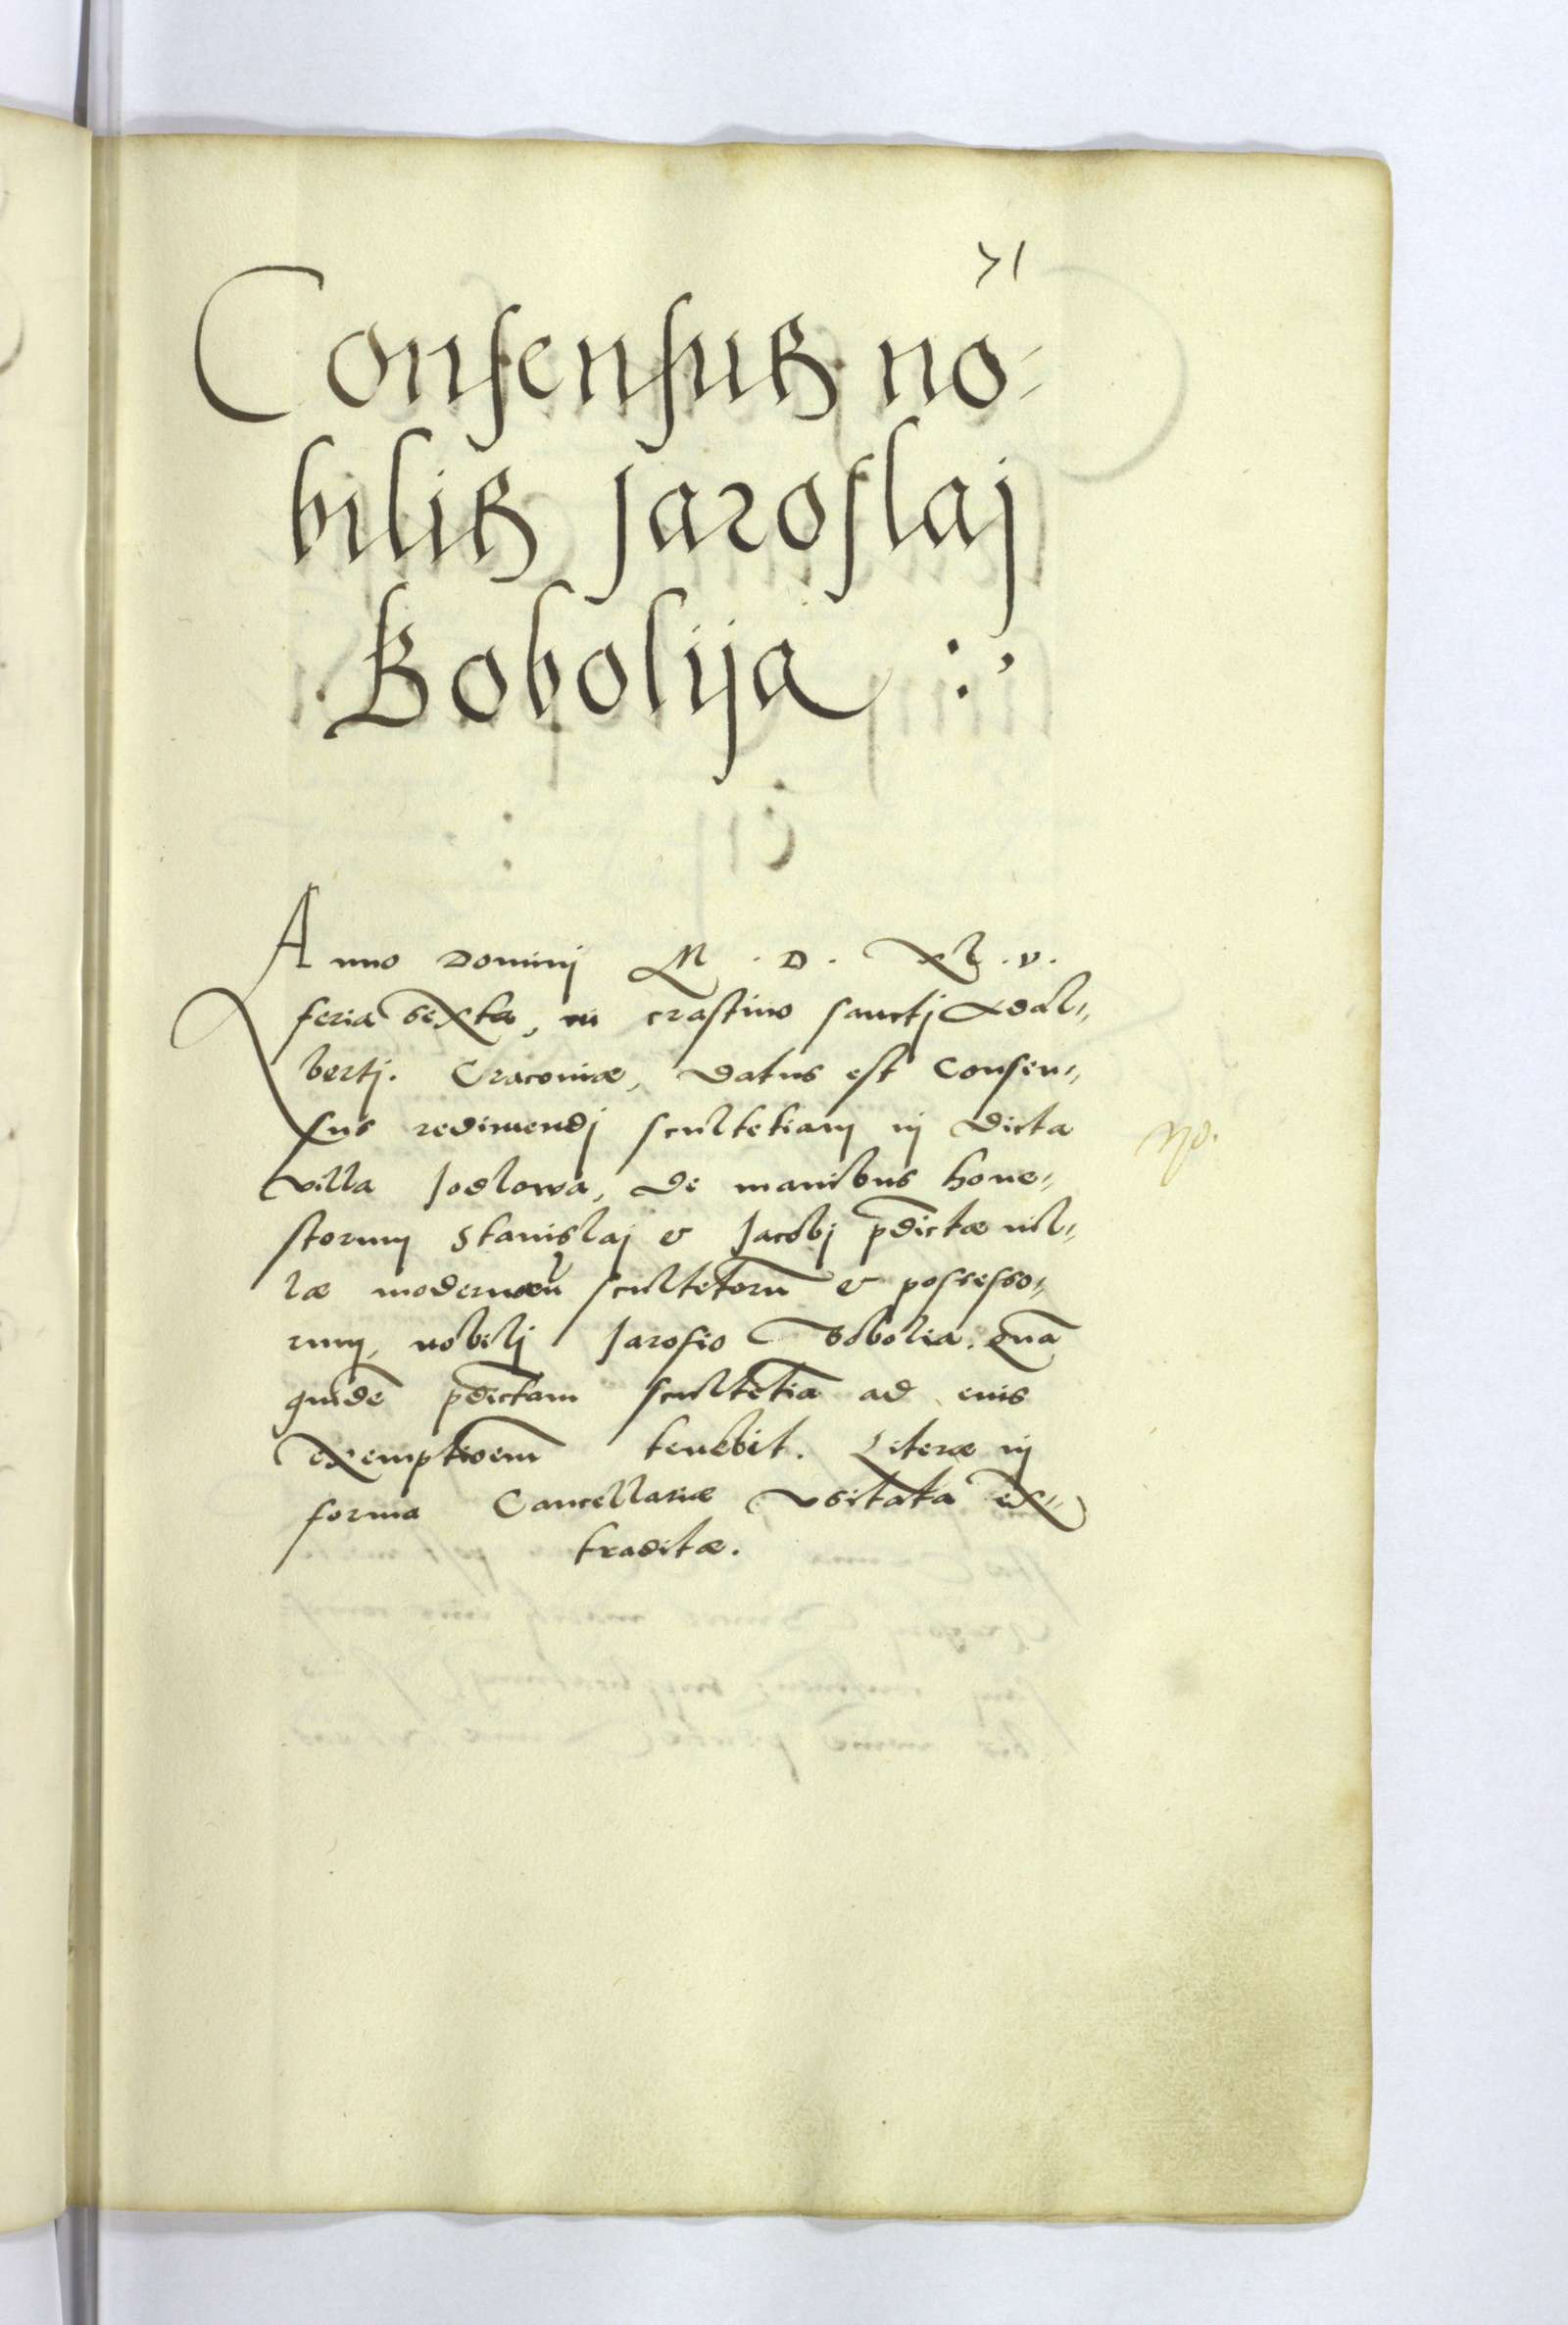 71
Consensus no-
bilis Jaroslaj
Bobolija :,
Anno Dominj M . D . XL . V .
feria sexta, in crastino sanctj Adal„
bertj. Cracoviæ, datus est Consen„
sus redimendj scultetiam in dicta
villa Jodlowa, de manibus hone„
storum Stanislaj & Jacobj p̄dictæ vil„
læ modernorū scultetorū & possesso„
rum, nobilj Jarosio Bobolia. Quā
quidē p̄dictam scultetiā ad eius
exemptioem̄ tenebit. Literæ in
forma Cancellariæ vsitata ex„
traditæ.